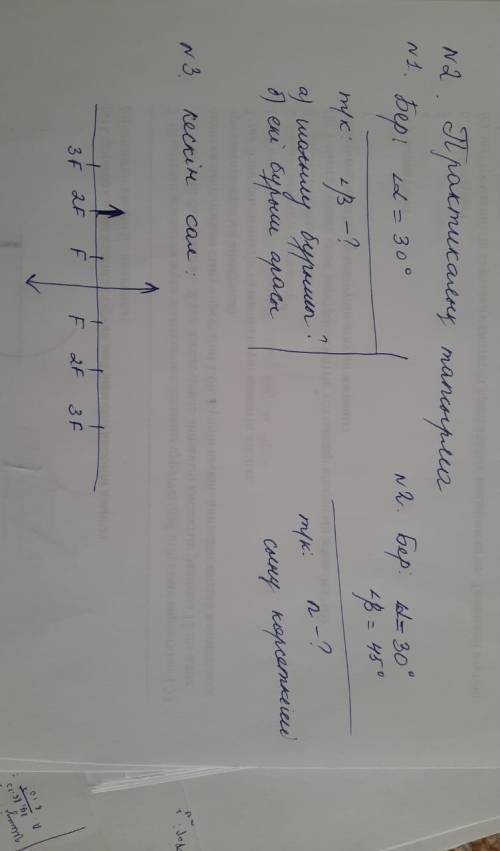 N2. Практикалық тапсырма
N1. Бер: ∠α = 30°
т/к: ∠β - ?
а) шағылу бұрышы?
б) екі бұрыш арасы
N2. Бер: ∠α = 30°
∠β = 45°
т/к: n - ?
сыну көрсеткіші
N3. Кескін сал:
3F 2F F F 2F 3F